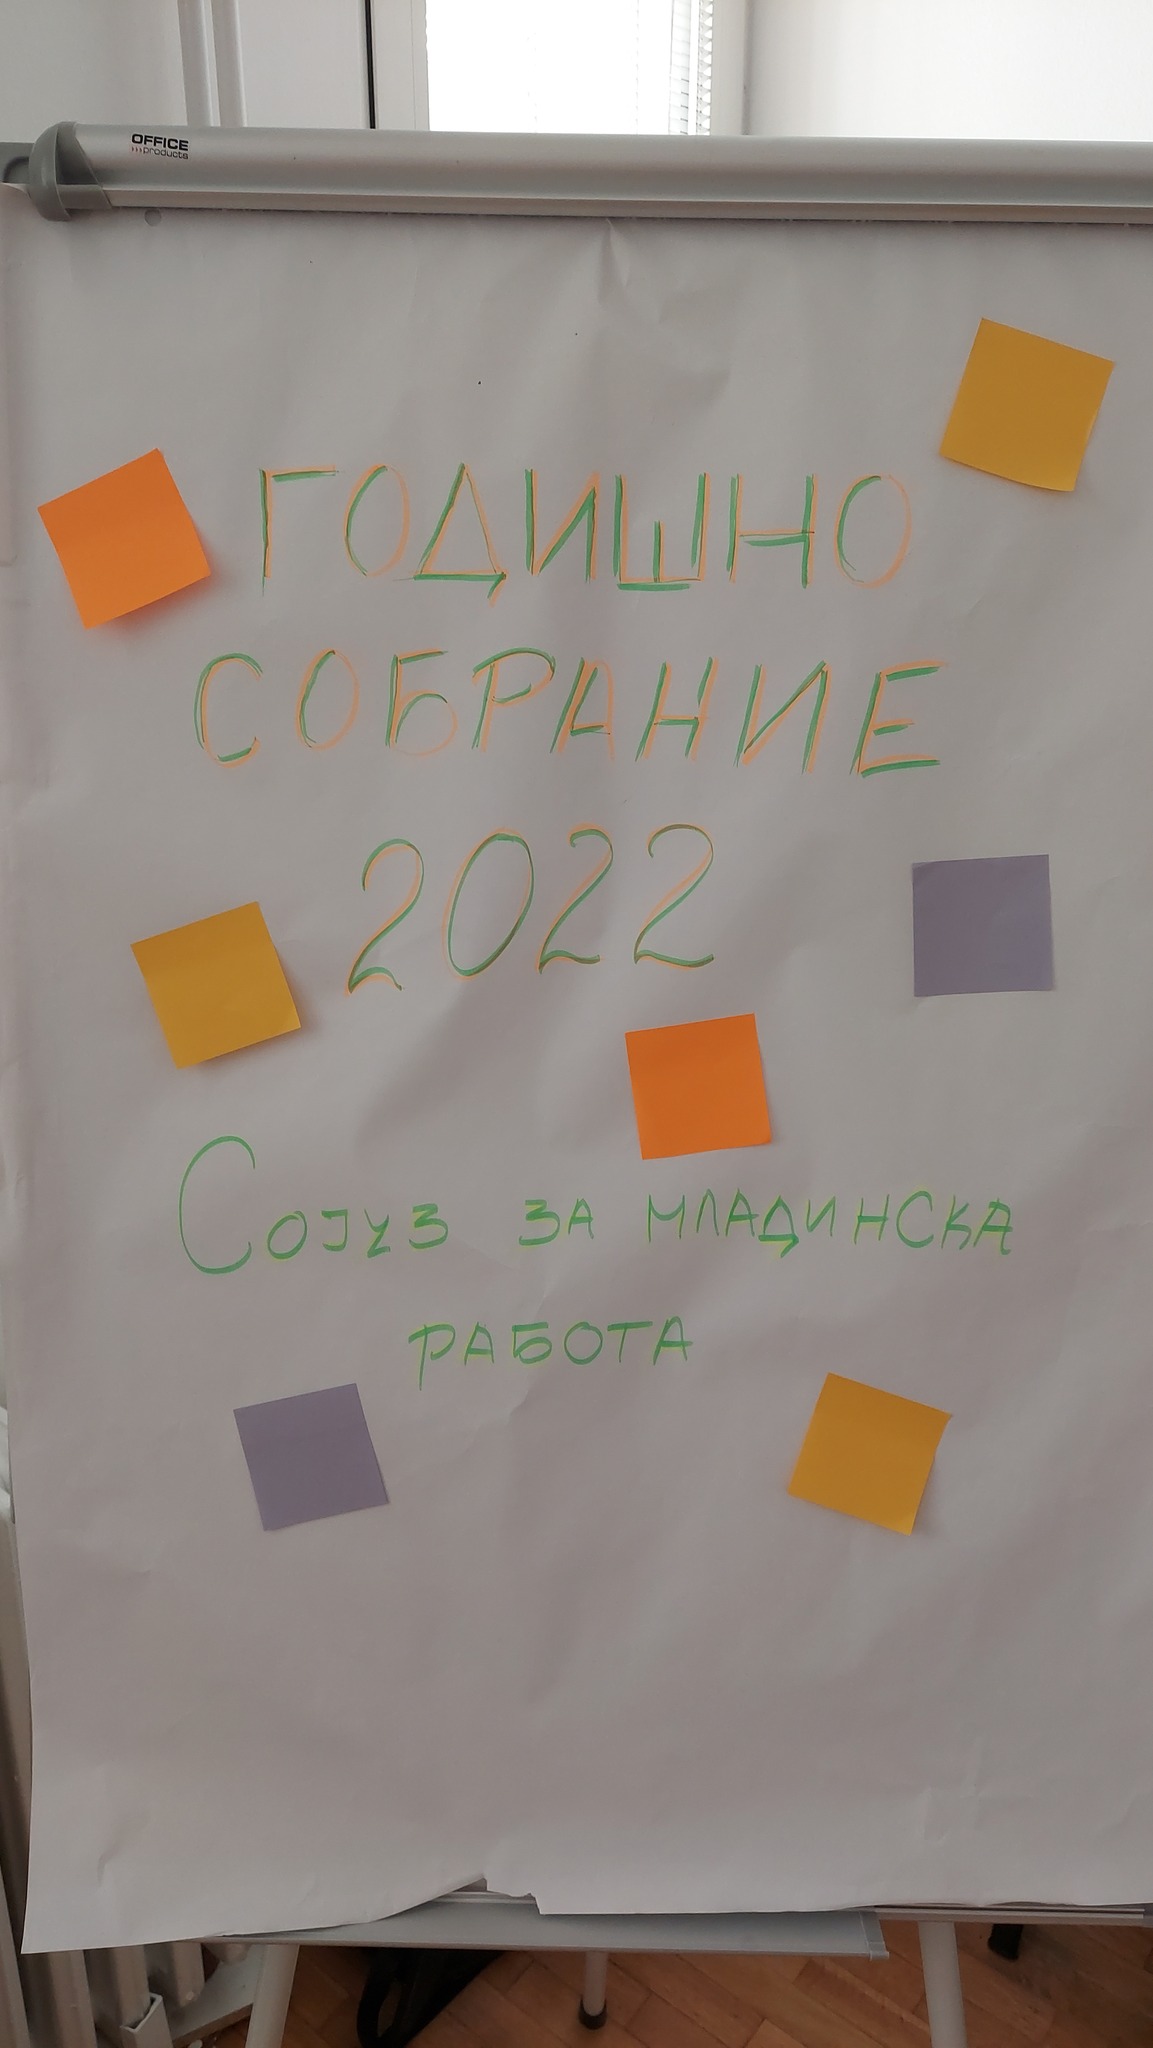 OFFICE
products
ГОДИШНО
СОБРАНИЕ
2022
Сојуз за младинска
работа